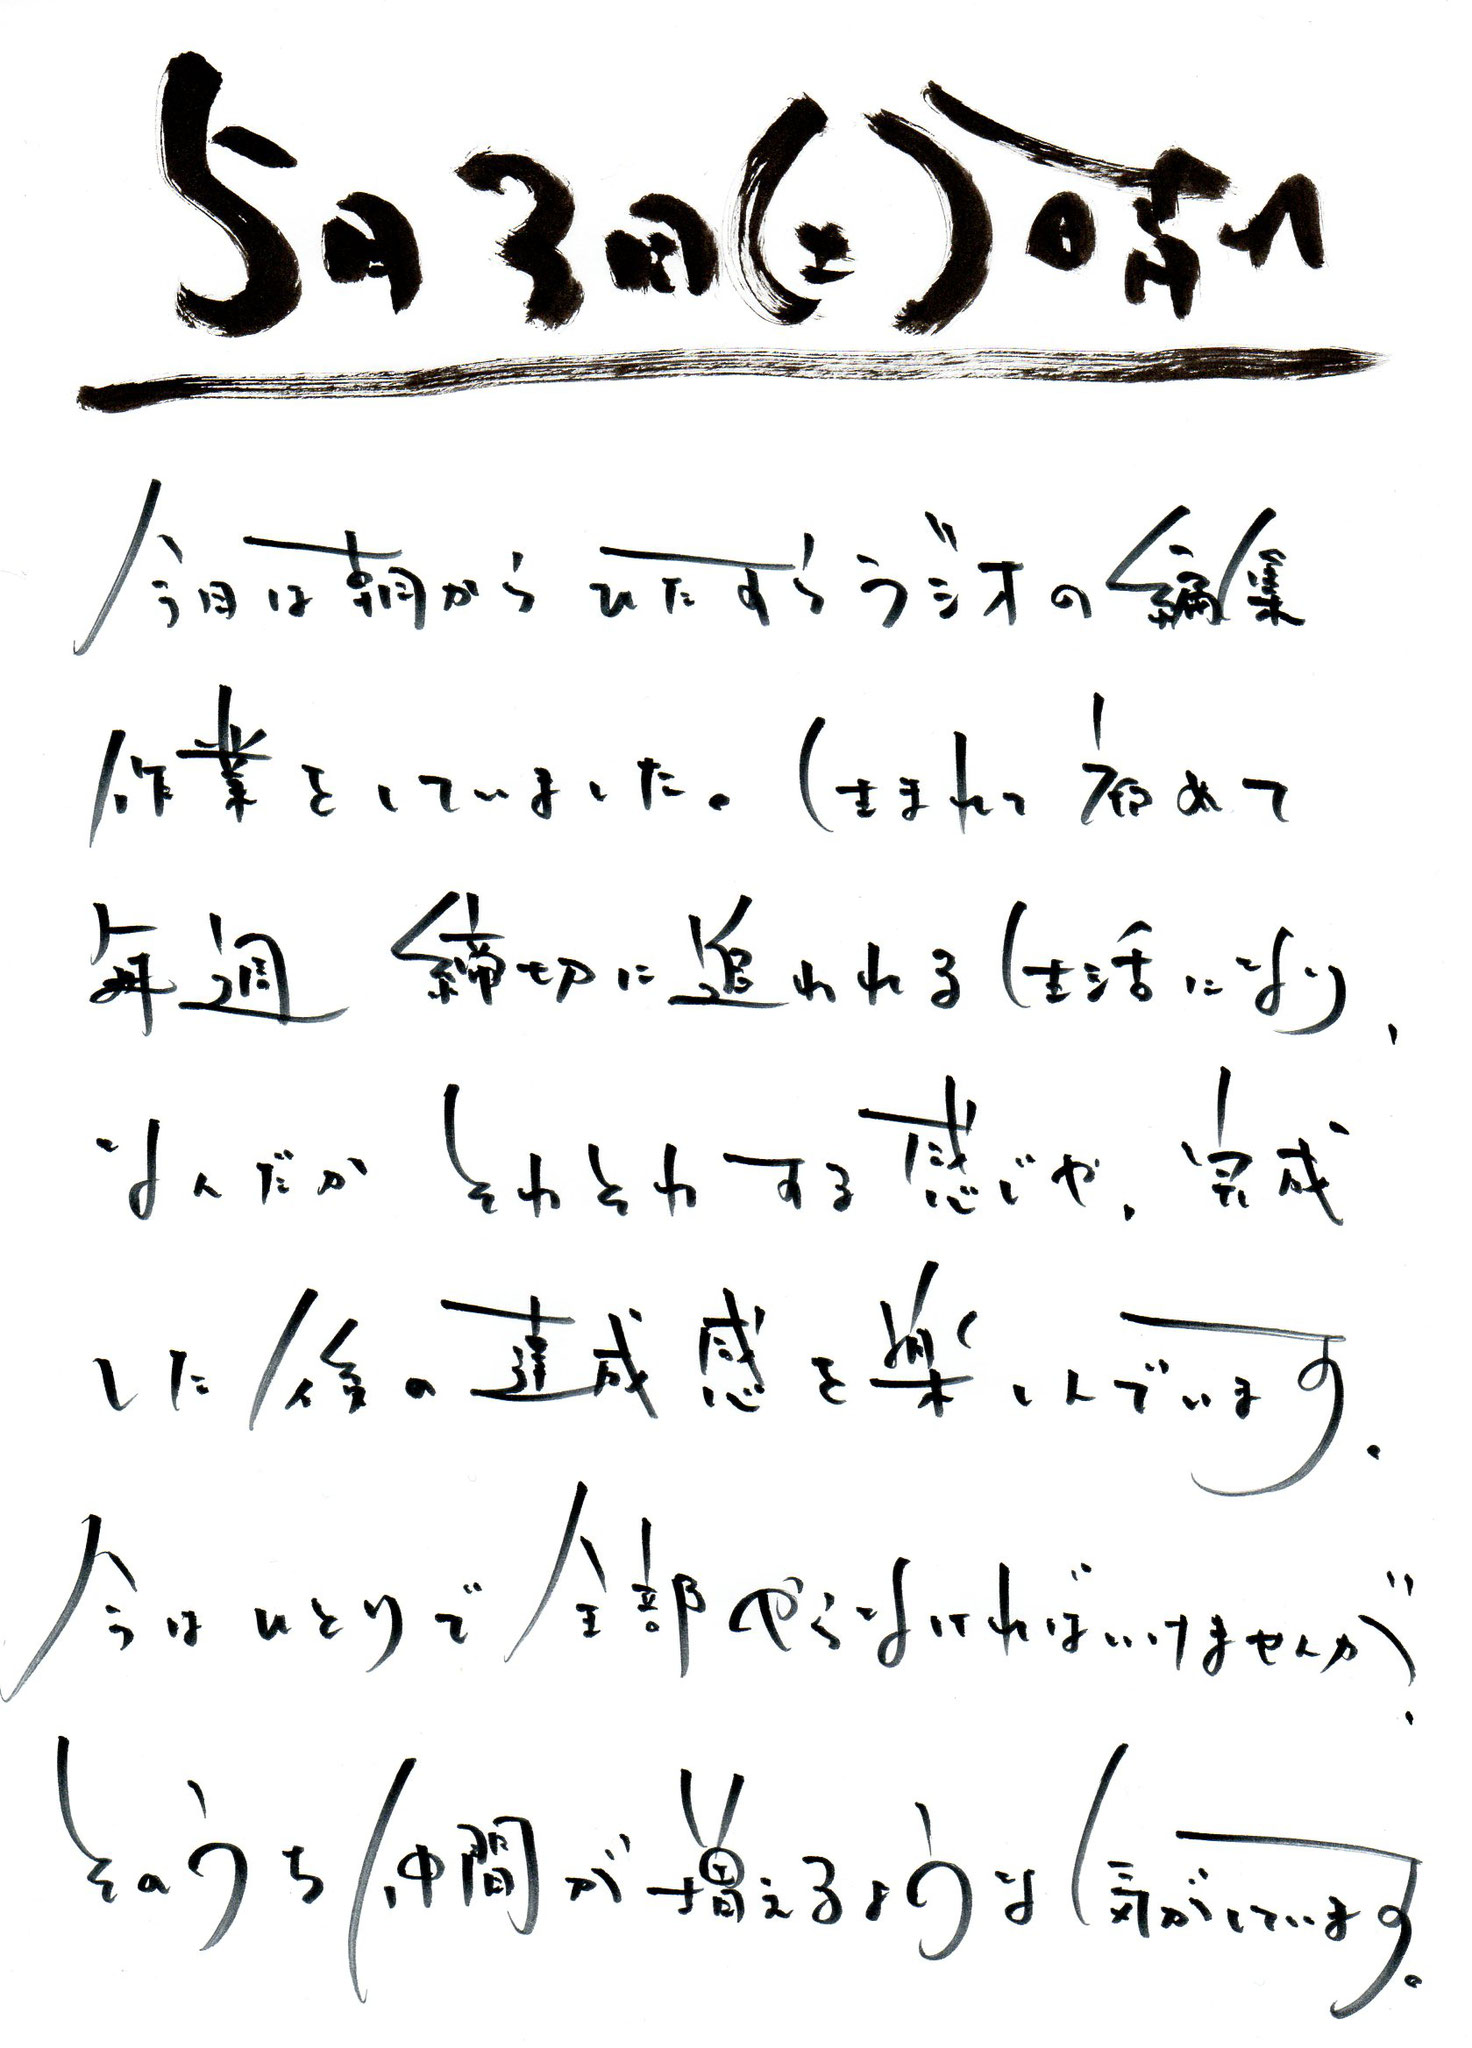 5月3日(土)晴れ
今日は朝からひたすらラジオの編集
作業をしていました。生まれて初めて
毎週 締切に追われる生活になり、
なんだか そわそわする感じや、完成
した後の達成感を楽しんでいます。
今はひとりで全部やらなければいけませんが、
そのうち仲間が増えるような気がしています。